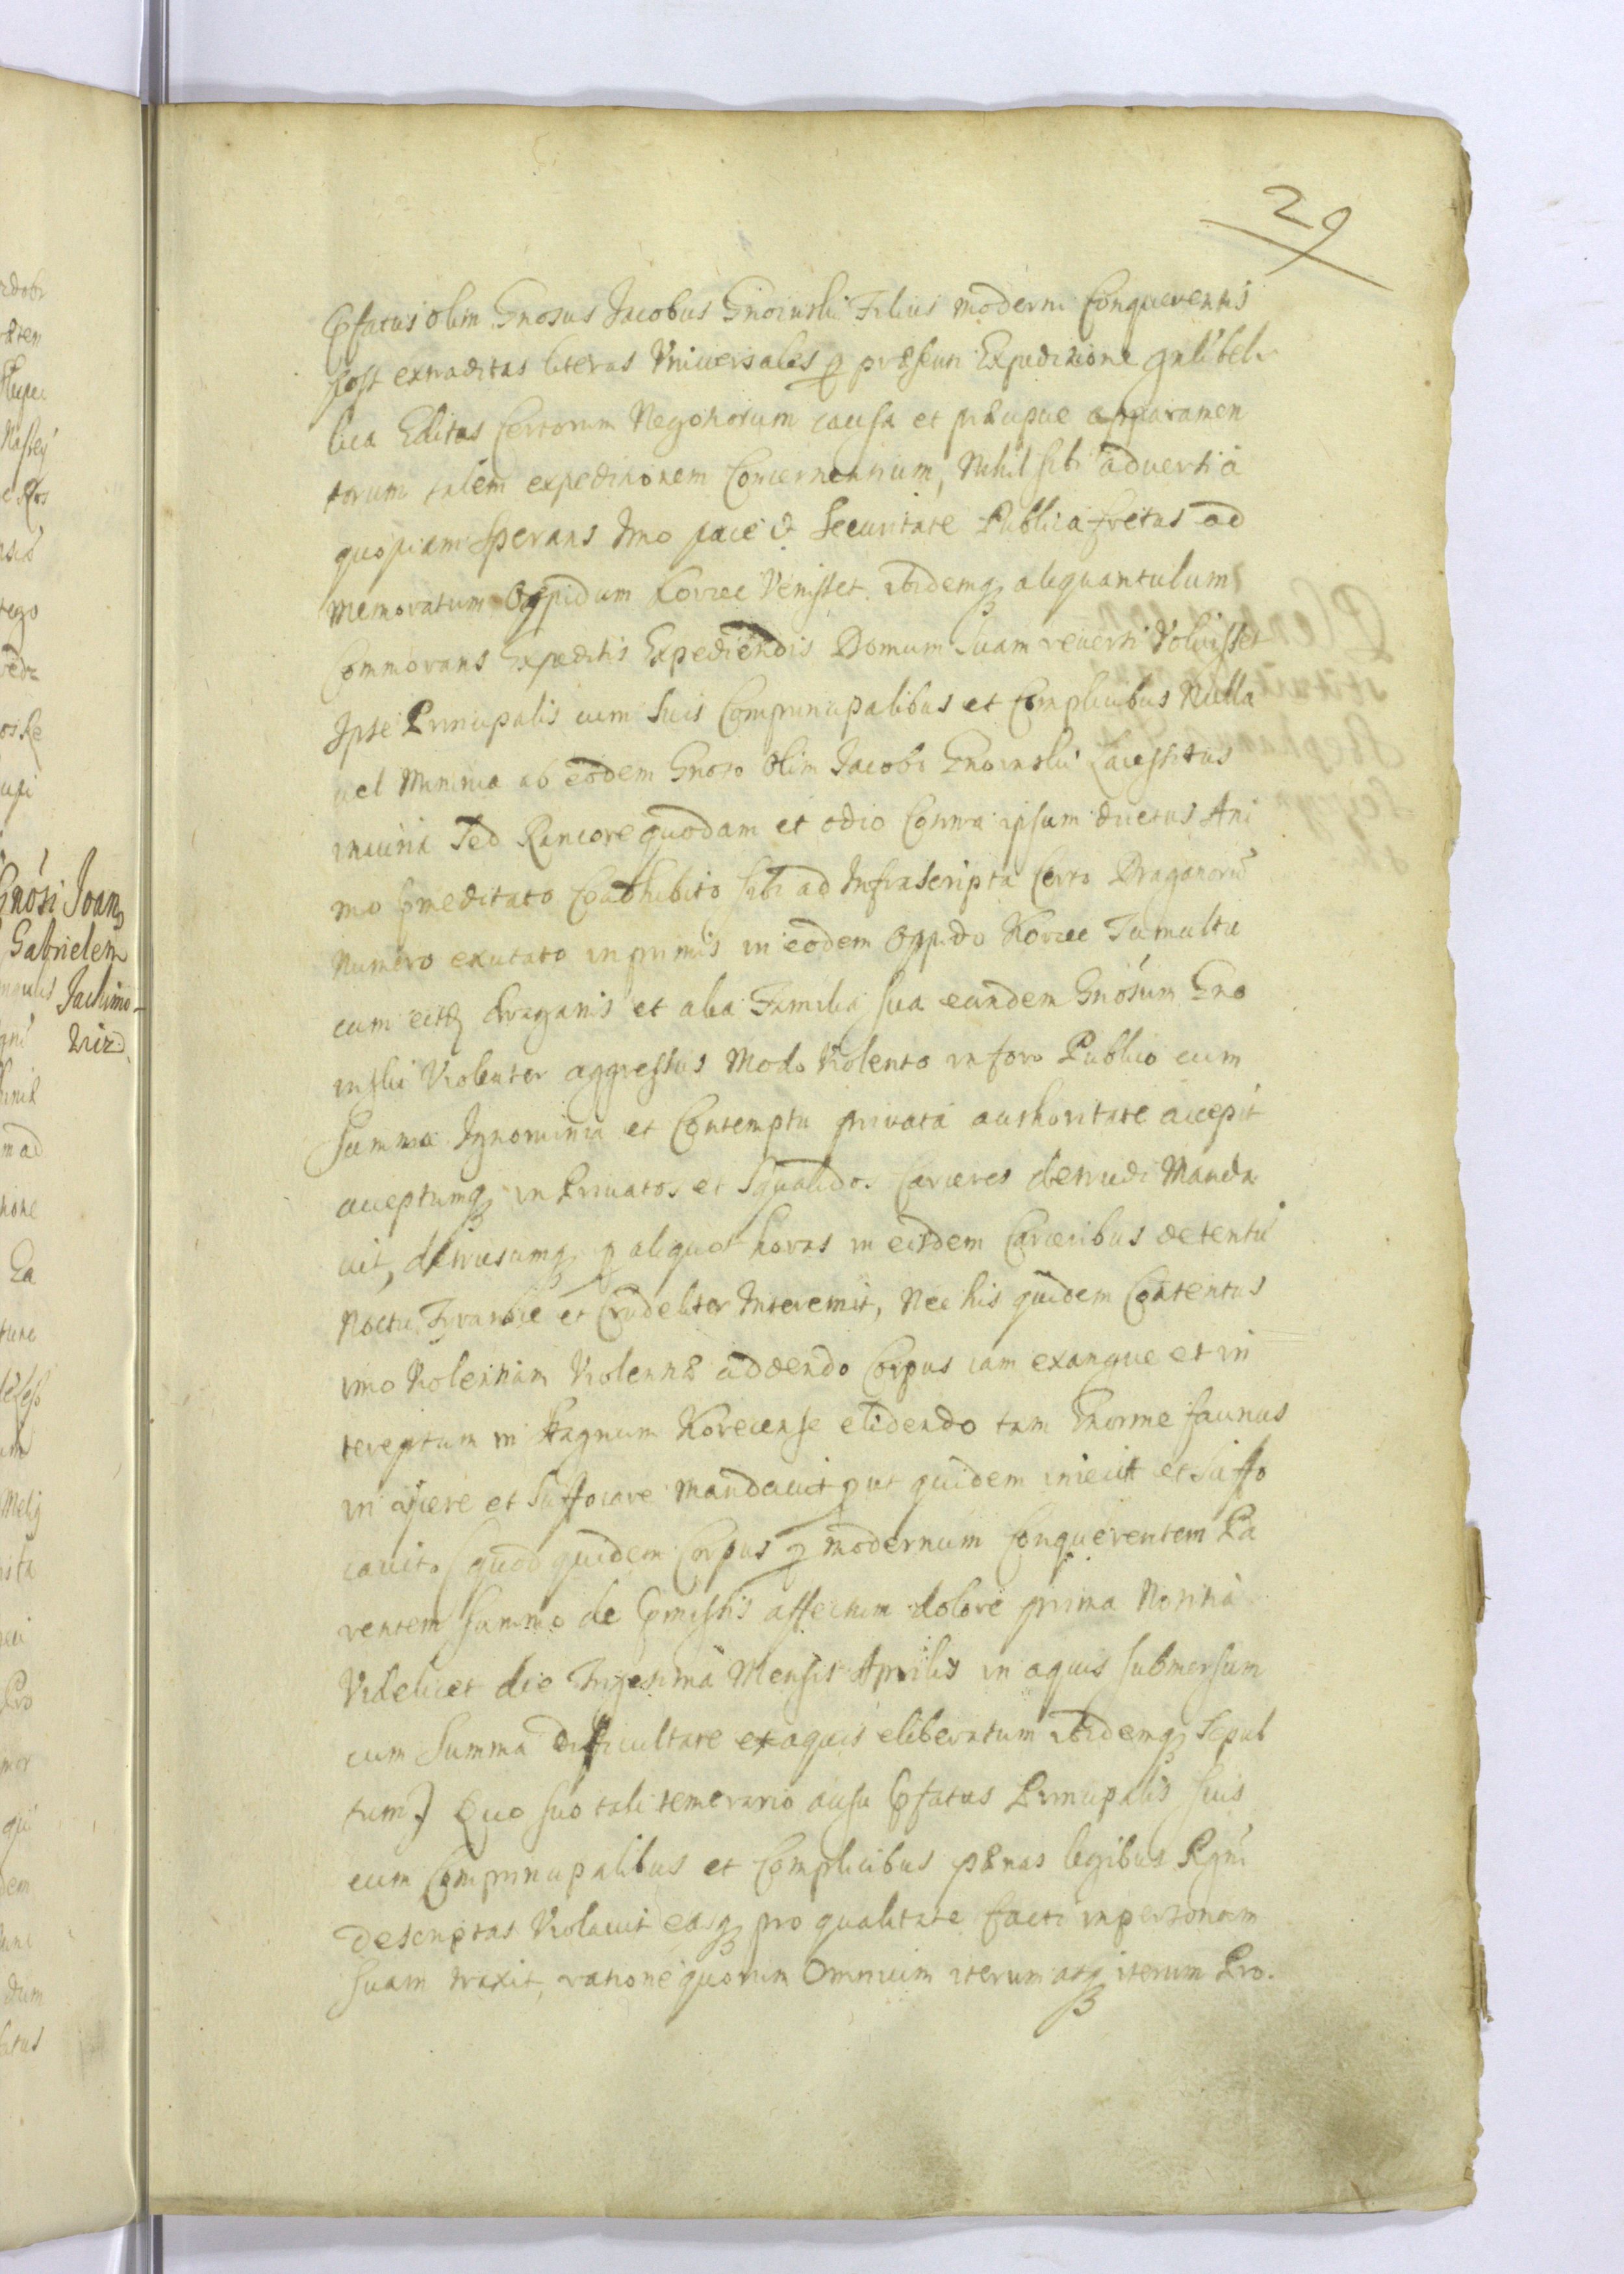 29
Pfatus olim Gnosus Jacobus Gnoinski Filius moderni Conquerentis
post extraditas literas Vniuersales p præsenti Expeditione gnli beli
lica Editas Certorum Negotiorum causa et præcipue apparamen
torum talem expeditionem Concernentium, Nihil sibi aduersi a
quopiam sperans Imo pace et Securitate Publica fretus ad
memoratum Oppidum Korzec Venisset ibidemq aliquantulum
Commorans Expeditis Expediendis Domum suam reuerti Voluisset
Ipse Principalis cum suis Comprincipalibus et Complicibus Nulla
uel Minima ab eodem Gnoso olim Jacobo Gnoinski Lacessitus
iniuria Sed Rancore quodam et odio Contra ipsum ductus Ani
mo pmeditato Coadhibito sibi ad Infrascripta Certo Draganorũ
Numero excitato inprimis in eodem Oppido Korzec Tumultu
cum eisd draganis et alia Familia sua eundem Gnosum Gno
inski Violenter aggressus Modo Violento in foro Publico cum
Summa Ignominia et Contemptu priuata authoritate accepit
acceptumq in Priuatos et Squalidos Carceres detrudi Manda
uit, detrusumq p aliquot horas in eisdem Carceribus detentũ
Noctu Tyrannice et Crudeliter Interemit, Nec his quidem Contentus
imo Violentiam Violentiæ addendo Corpus iam exangue et in
teremptum in stagnum Korecense elidendo tam Enorme facinus
inijcere et Suffocare Mandauit put quidem iniecit et Suffo
cauit (quod quidem Corpus p modernum Conquerentem Pa
rentem Summo de pmissis affectum dolore prima Notitia
Videlicet die Trigesima Mensis Aprilis in aquis submersum
cum Summa difficultate ex aquis eliberatum ibidemq Sepul
tum) Quo suo tali temerario ausu Pfatus Principalis suis
cum Comprincipalibus et Complicibus pænas legibus Rgni
descriptas Violauit easq pro qualitate facti in personam
suam traxit, ratione quorum Omnium iterum atq iterum Pro.
Gnosi Joan
Gabrielem
Jachimo
wiz